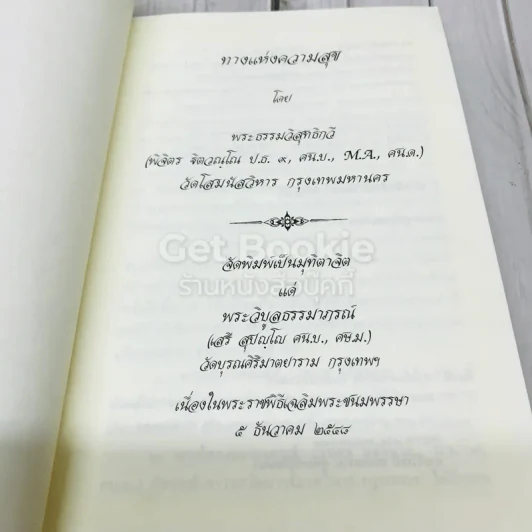 ทางแห่งความสุข
โดย
พระธรรมวิสุทธิกวี
(พิจิตร ฐิตวณฺโณ ป.ธ. ๙, ศน.บ., M.A., ศน.ด.)
วัดโสมนัสวิหาร กรุงเทพมหานคร
Get Bookie
ร้านหนังสือบุ๊คกี้
จัดพิมพ์เป็นมุทิตาจิต
แด่
พระวิบูลธรรมาภรณ์
(เสรี สุปญฺโญ ศน.บ., ศษ.ม.)
วัดบุรณศิริมาตยาราม กรุงเทพฯ
เนื่องในพระราชพิธีเฉลิมพระชนมพรรษา
๕ ธันวาคม ๒๕๔๘